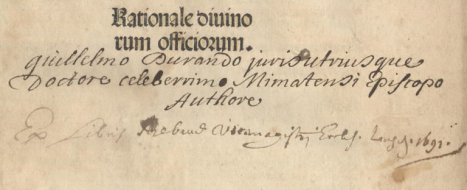 Rationale diuino
rum officiorum.
guillelmo Durando juris utriusque
Doctore celeberrimo Mimatensi Episcopo
Authore
Ex Libris 1691.